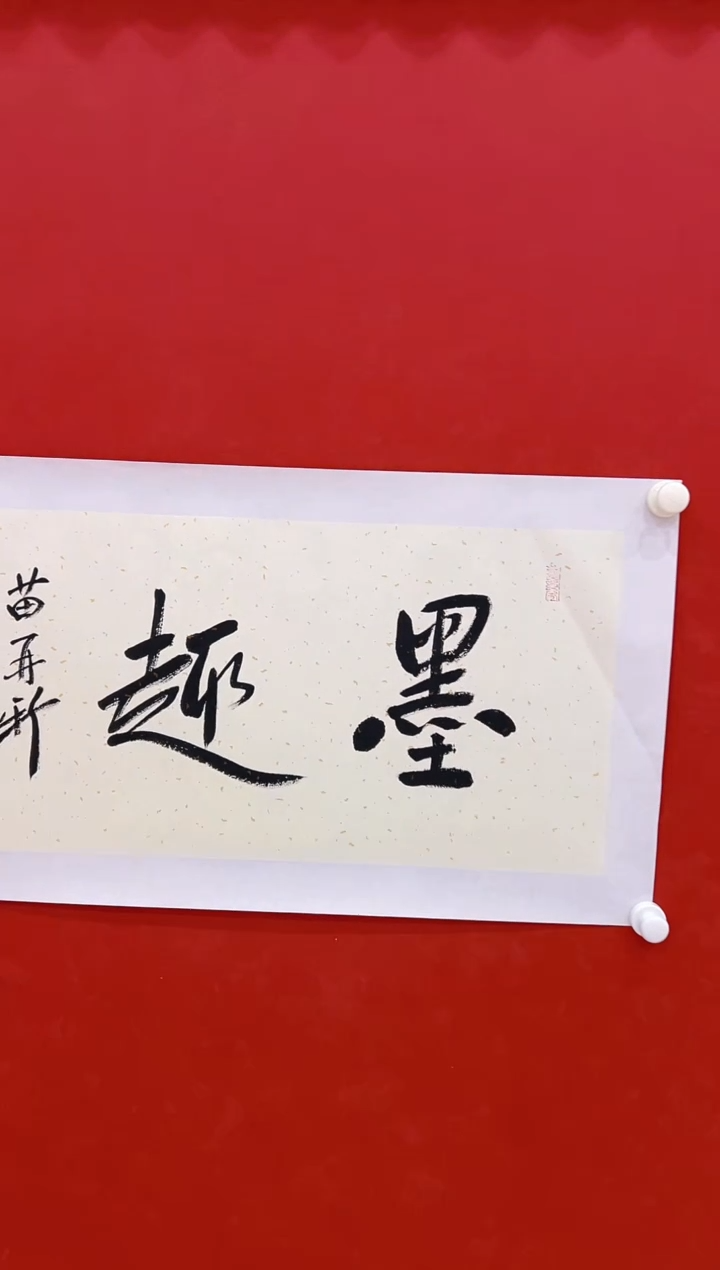 墨趣
苗再新